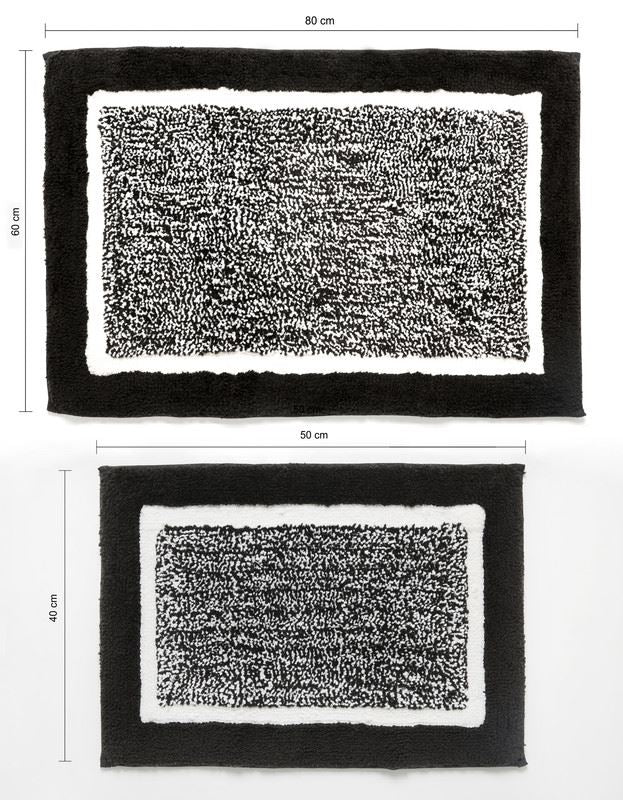 80 cm
60 cm
50 cm
50 cm
40 cm